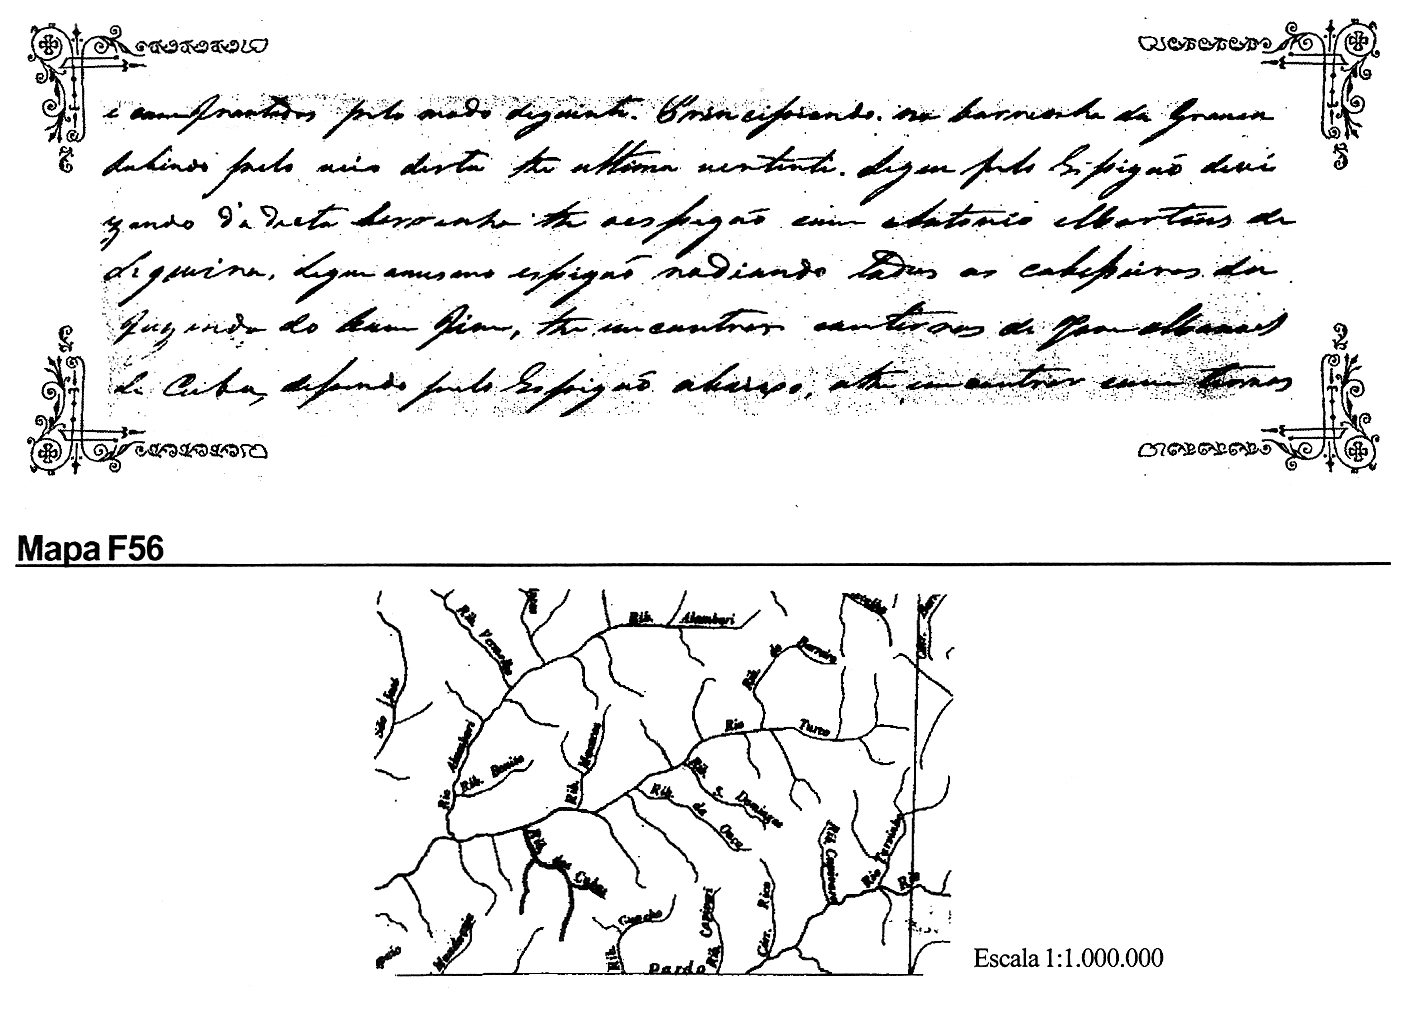 e comfrontados pelo modo siguinte. Principiando. na barrinha da Grama
subindo pelo veio desta the ultima vertente. Segue pelo Espigaõ devi
zando d'a dacta barrinha the o espigaõ com Antonio Martins de
Siqueira, segue o mesmo espigaõ rodiando todas as cabeseiras da
fazenda do bom fim, the encontrar com terras de Jose Manoel
de Cuba, desendo pelo Espigaõ abaixo, athe encontrar com terras
Mapa F56
Rib. Vermelho
Rib. Alambari
Rib. do Barreiro
São José
Rio Alambari
Rib. Bonito
Rib. Macacos
Rio Turvo
Rib. S. Domingos
Rib. da Onça
Rib. dos Cubas
Rib. Capivara
Rio Turvinho
Rio
Córr. Rico
Rib. Capivari
Rib. Guacho
Mandaguaí
Pardo
Escala 1:1.000.000